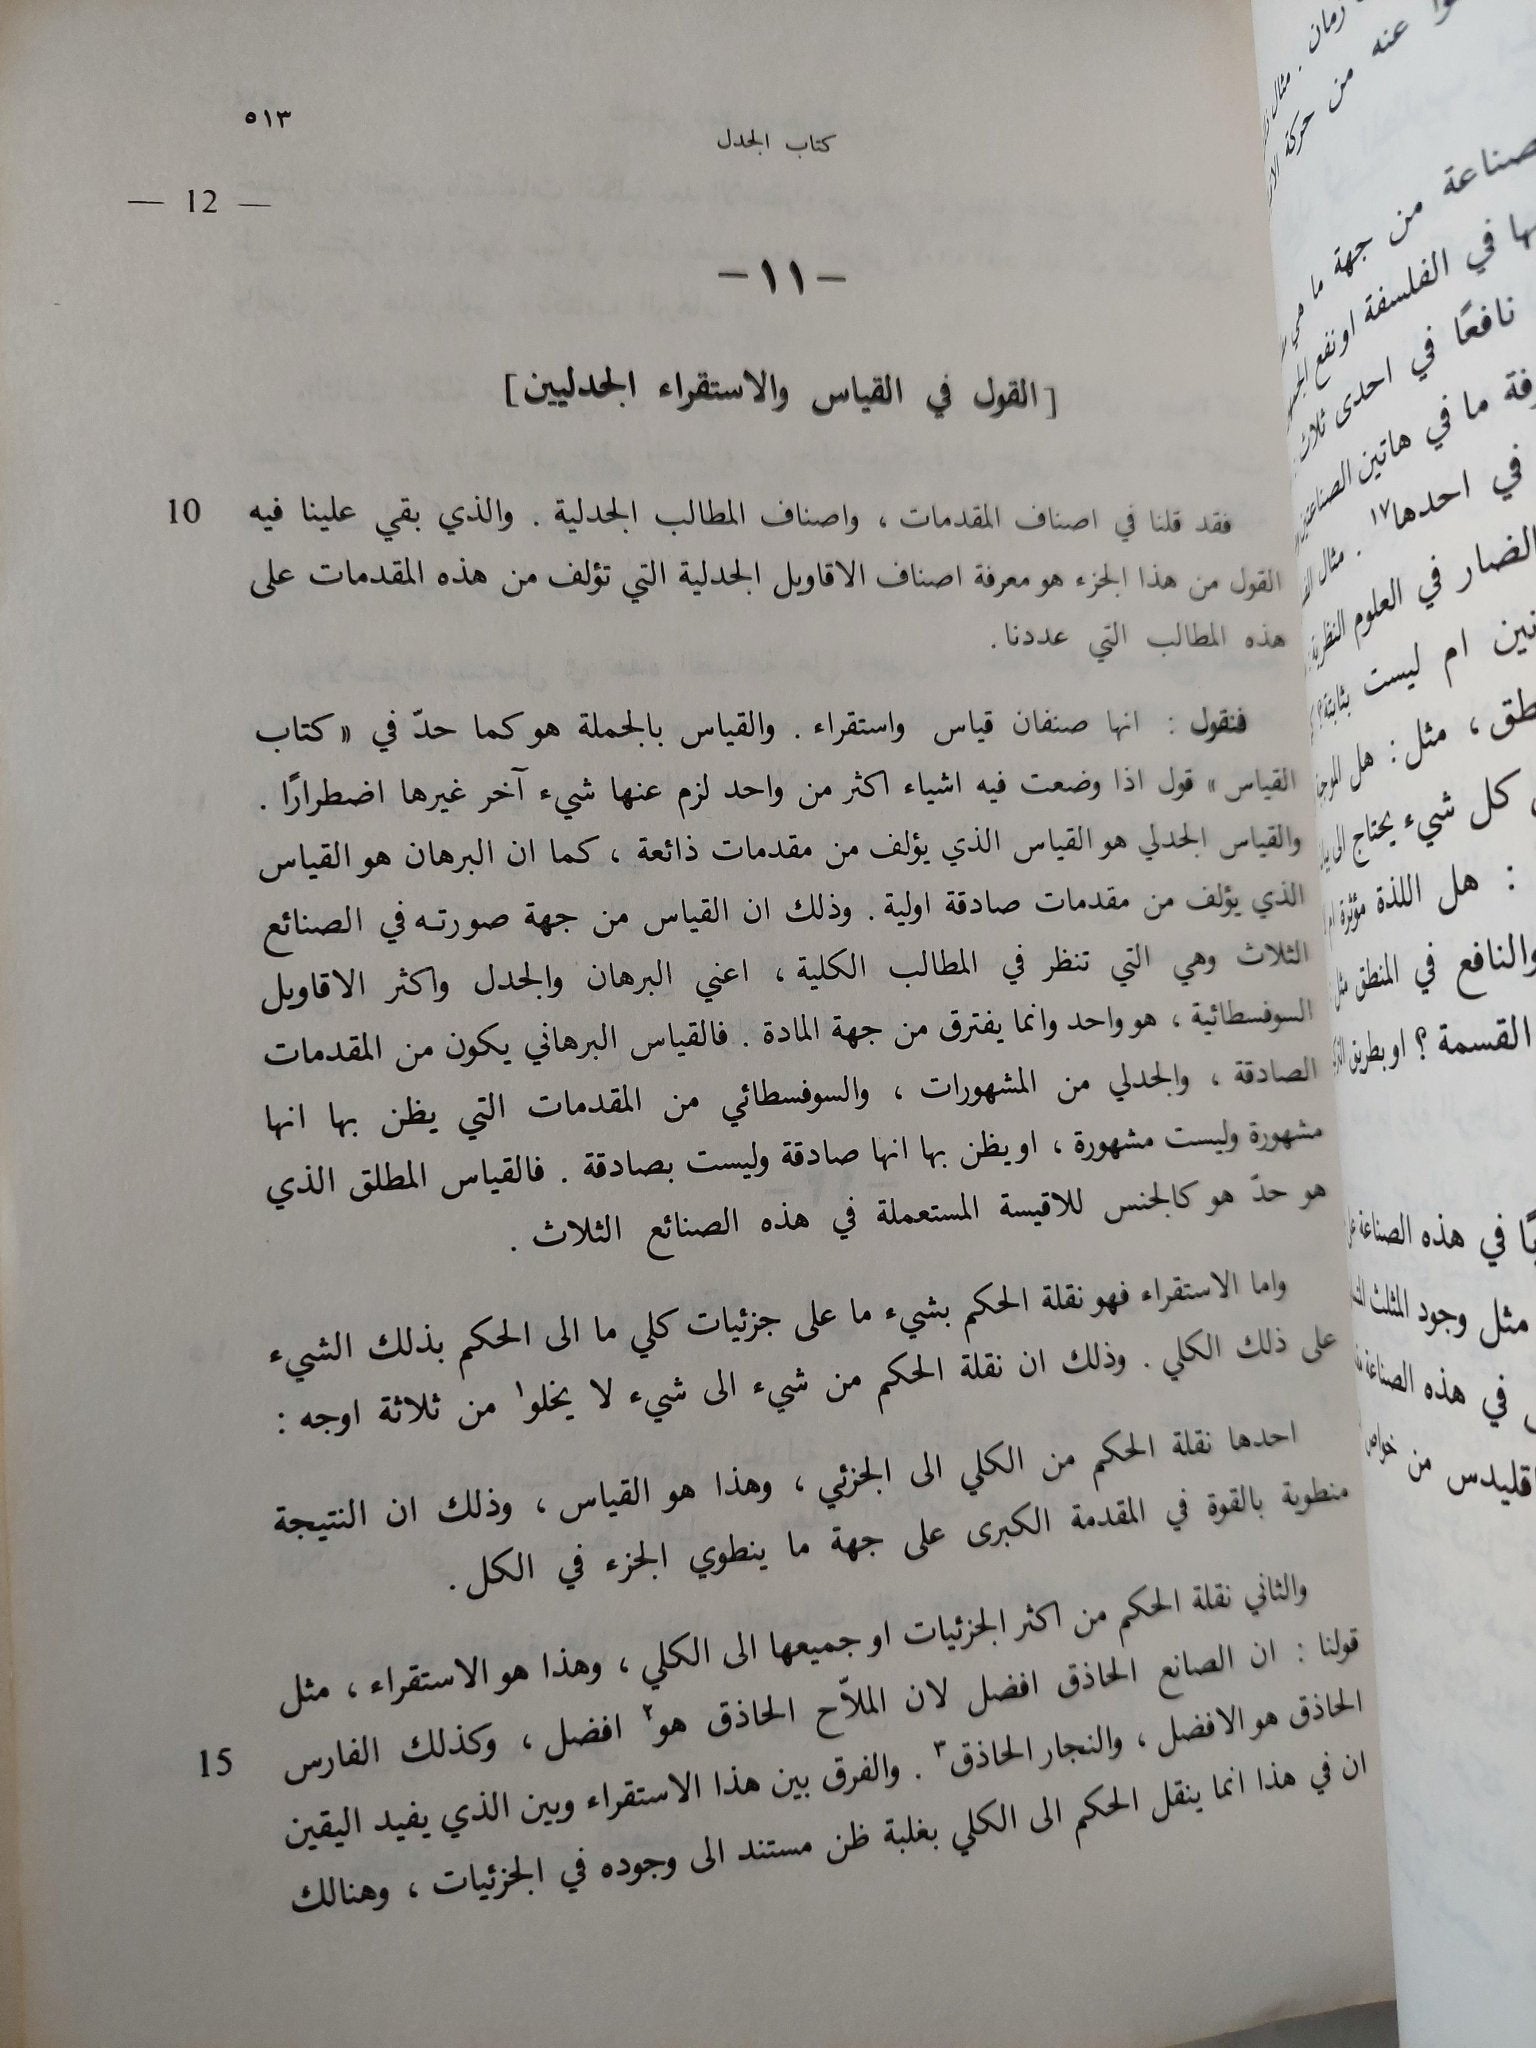 كتاب الجدل
٥١٣
— 12 —
— ١١ —
[القول في القياس والاستقراء الجدليين]
فقد قلنا في اصناف المقدمات ، واصناف المطالب الجدلية . والذي بقي علينا فيه
10
القول من هذا الجزء هو معرفة اصناف الاقاويل الجدلية التي تؤلف من هذه المقدمات على
هذه المطالب التي عددنا .
فنقول : انها صنفان قياس واستقراء . والقياس بالجملة هو كما حدّ في « كتاب
القياس » قول اذا وضعت فيه اشياء اكثر من واحد لزم عنها شيء آخر غيرها اضطرارًا .
والقياس الجدلي هو القياس الذي يؤلف من مقدمات ذائعة ، كما ان البرهان هو القياس
الذي يؤلف من مقدمات صادقة اولية . وذلك ان القياس من جهة صورته في الصنائع
الثلاث وهي التي تنظر في المطالب الكلية ، اعني البرهان والجدل واكثر الاقاويل
السوفسطائية ، هو واحد وانما يفترق من جهة المادة . فالقياس البرهاني يكون من المقدمات
الصادقة ، والجدلي من المشهورات ، والسوفسطائي من المقدمات التي يظن بها انها
مشهورة وليست مشهورة ، او يظن بها انها صادقة وليست بصادقة . فالقياس المطلق الذي
هو حدّ هو كالجنس للاقيسة المستعملة في هذه الصنائع الثلاث .
واما الاستقراء فهو نقلة الحكم بشيء ما على جزئيات كلي ما الى الحكم بذلك الشيء
على ذلك الكلي . وذلك ان نقلة الحكم من شيء الى شيء لا يخلو١ من ثلاثة اوجه :
احدها نقلة الحكم من الكلي الى الجزئي ، وهذا هو القياس ، وذلك ان النتيجة
منطوية بالقوة في المقدمة الكبرى على جهة ما ينطوي الجزء في الكل .
والثاني نقلة الحكم من اكثر الجزئيات او جميعها الى الكلي ، وهذا هو الاستقراء ، مثل
قولنا : ان الصانع الحاذق افضل لان الملاّح الحاذق هو٢ افضل ، وكذلك الفارس
15
الحاذق هو الافضل ، والنجار الحاذق٣ . والفرق بين هذا الاستقراء وبين الذي يفيد اليقين
ان في هذا انما ينقل الحكم الى الكلي بغلبة ظن مستند الى وجوده في الجزئيات ، وهنالك
زمان . مثال
عنه من حركة
صناعة من جهة ما هي
في الفلسفة او نفع
نافعًا في احدى ثلاث
ما في هاتين
في احدها١٧ . مثال
الضار في العلوم النظرية
ام ليست بثابتة
، مثل : هل
كل شيء يحتاج الى
: هل اللذة مؤثرة
والنافع في المنطق مثل
القسمة ؟ او بطريق
في هذه الصناعة
مثل وجود المثلث
في هذه الصناعة
من خواص